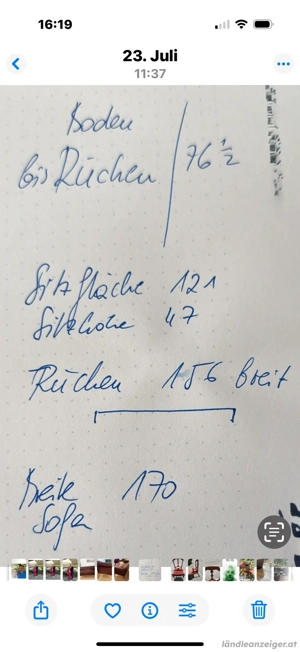 16:19
23. Juli
11:37
Boden
bis Rücken / 76 1/2
Sitzfläche 121
Sitzhöhe 47
Rücken 156 breit
Breite 170
Sofa
ländleanzeiger.at